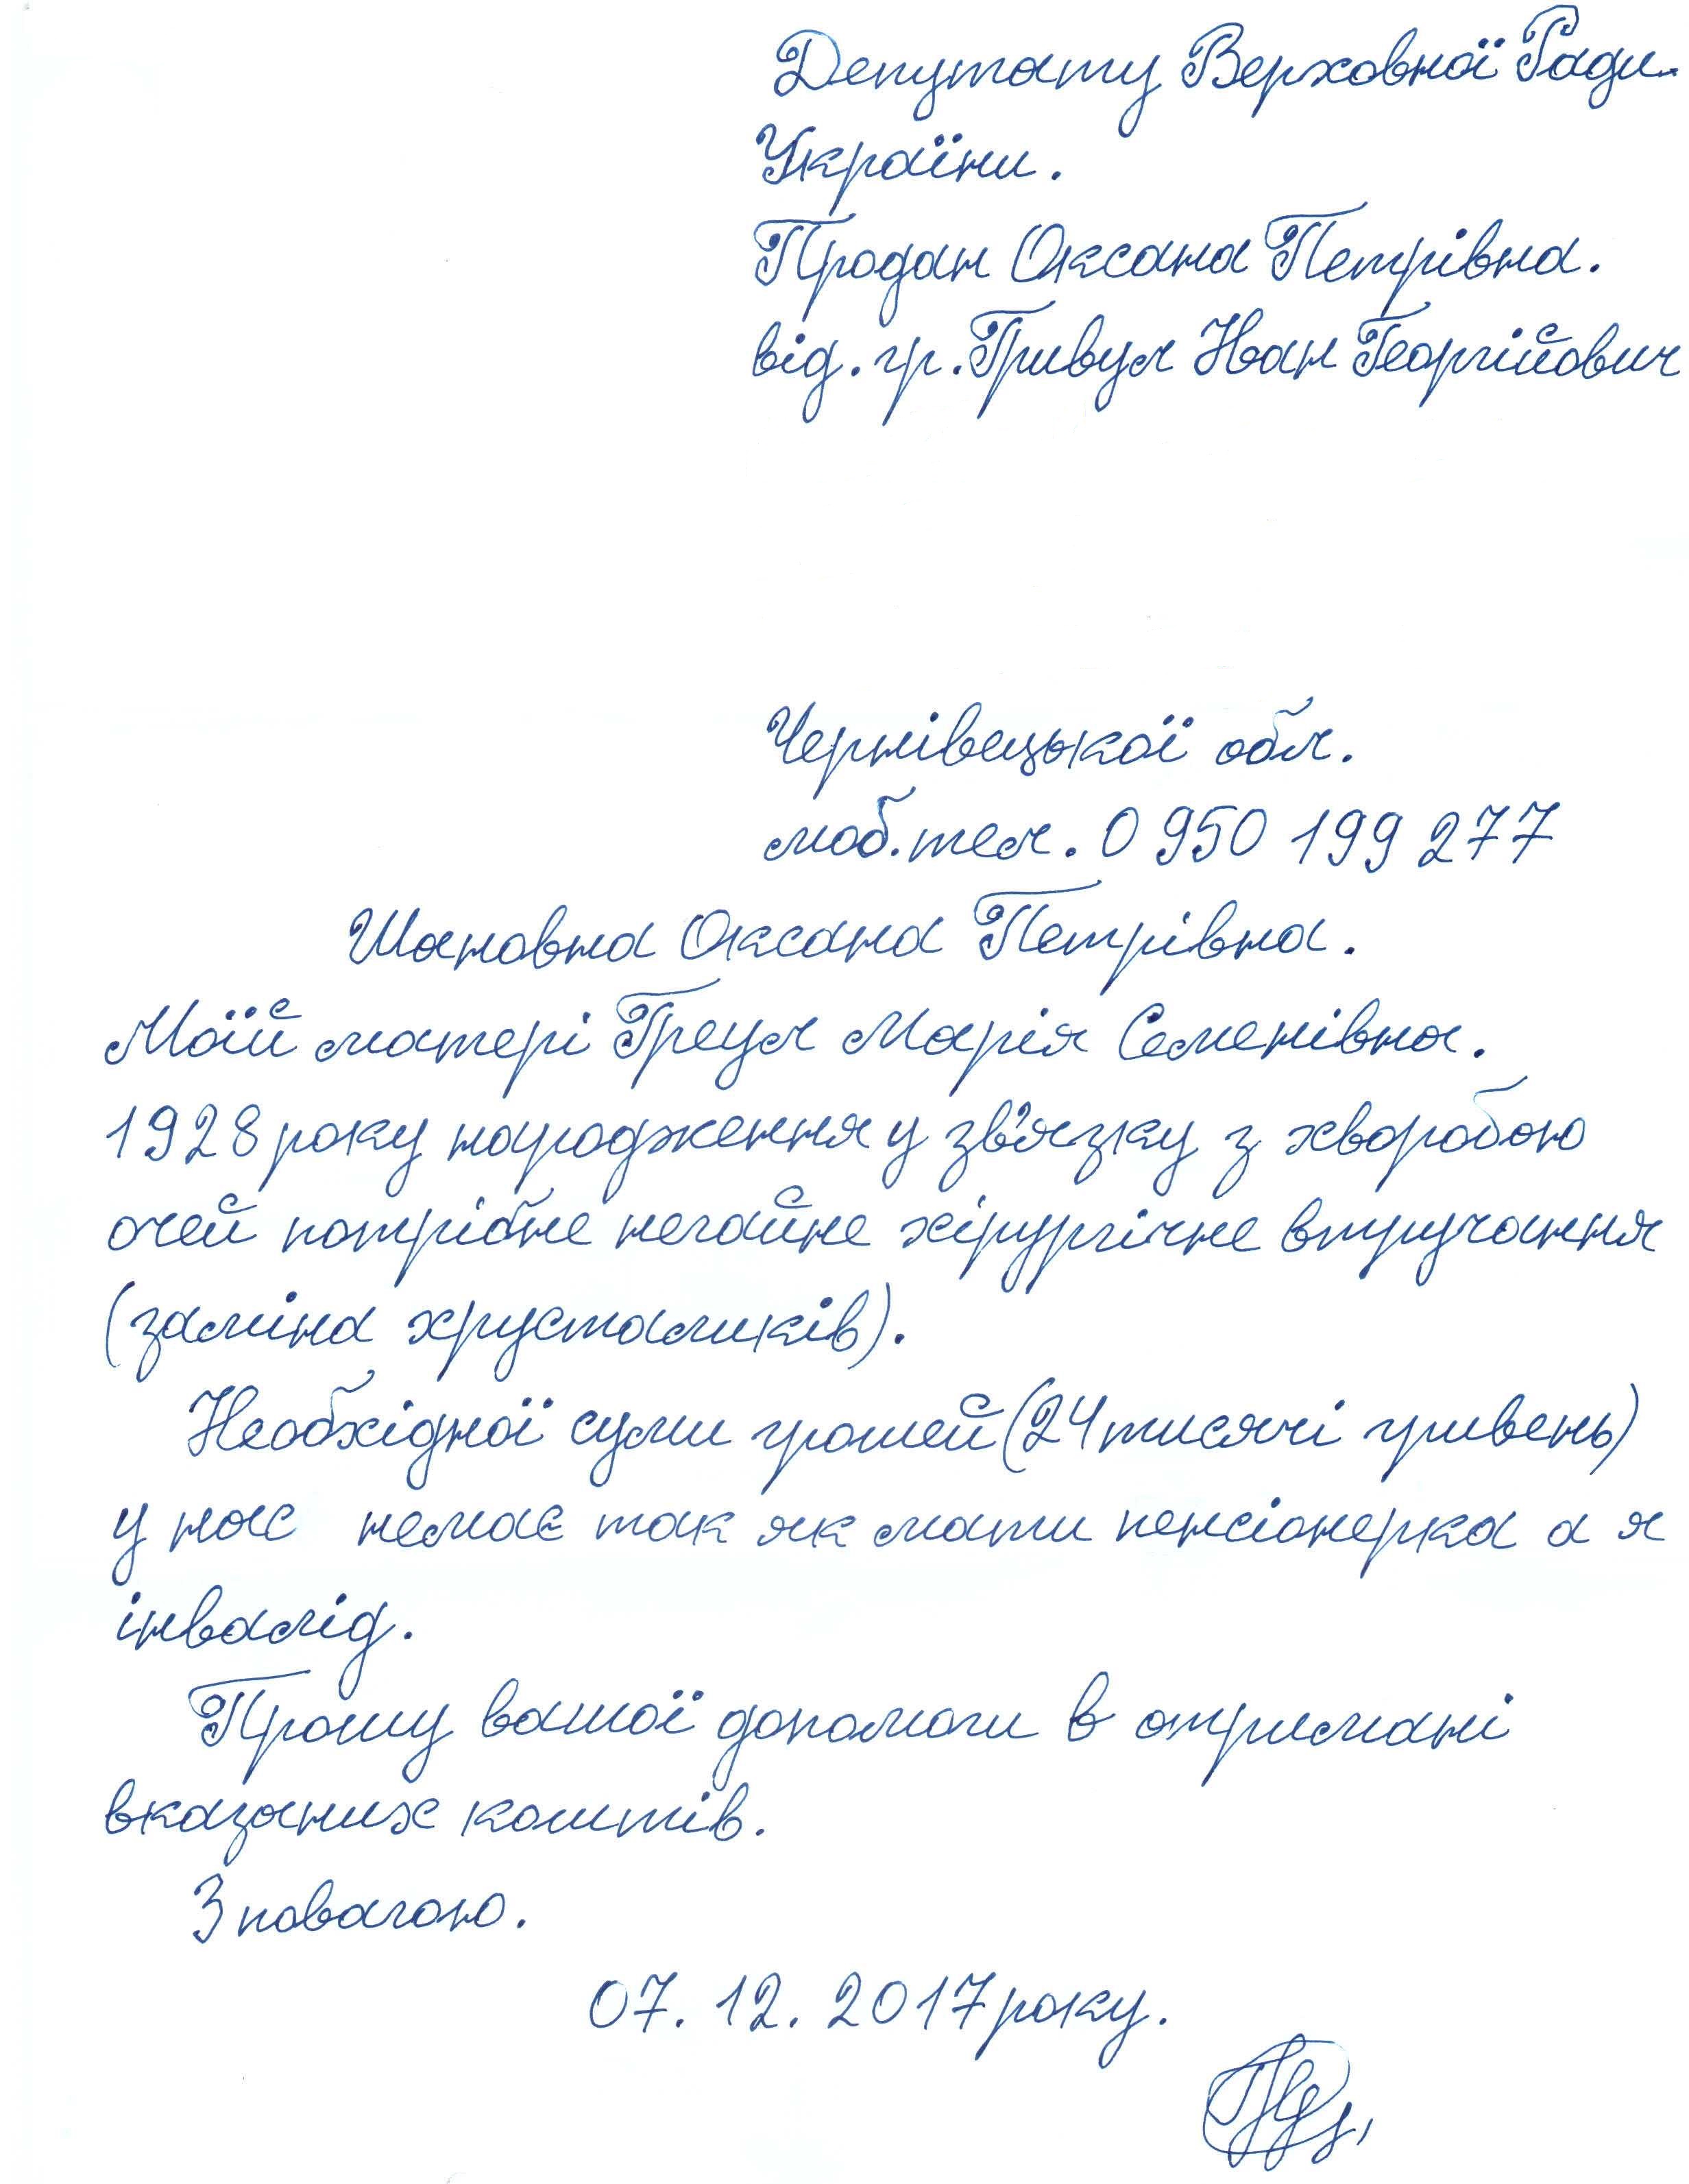 Депутату Верховної Ради
України.
Продан Оксана Петрівна.
від. гр. Гривул Іван Георгійович
Чернівецької обл.
моб. тел. 0 950 199 277
Шановна Оксана Петрівна.
Моїй матері Греул Марія Семенівна.
1928 року народження у зв'язку з хворобою
очей потрібне негайне хірургічне втручання
(заміна хрусталиків).
Необхідної суми грошей (24 тисячі гривень)
у нас немає так як мати пенсіонерка а я
інвалід.
Прошу вашої допомоги в отримані
вказаних коштів.
З повагою.
07. 12. 2017 року.